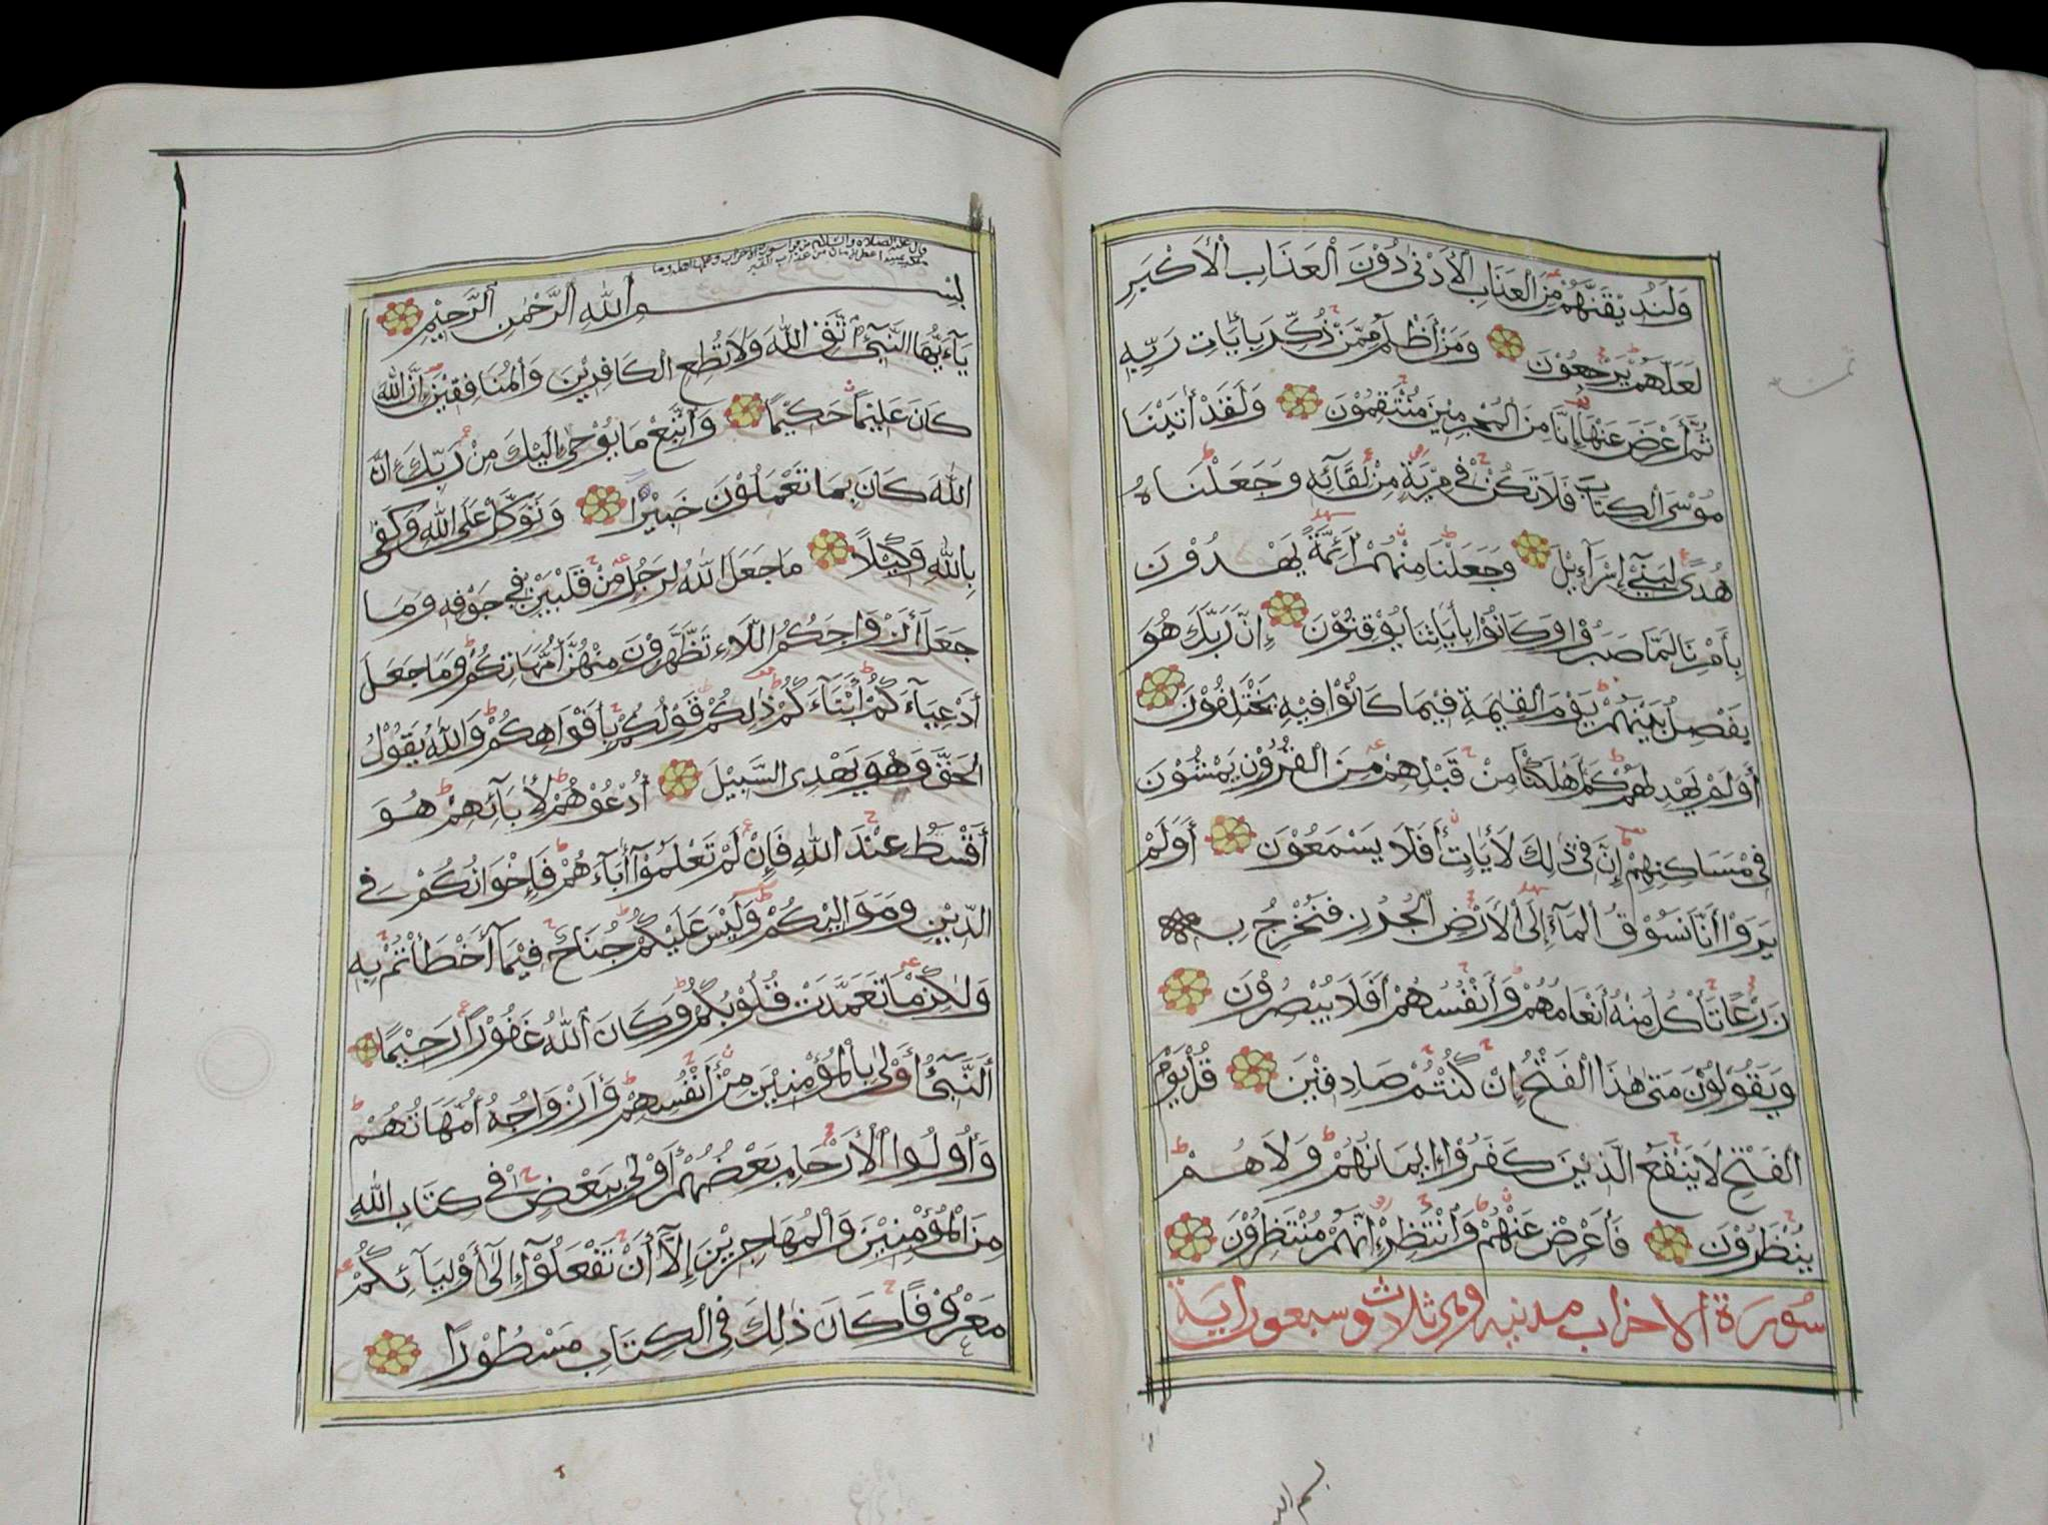 وَلَنُذِيْقَنَّهُمْ مِنَ الْعَذَابِ الْأَدْنٰى دُوْنَ الْعَذَابِ الْأَكْبَرِ
لَعَلَّهُمْ يَرْجِعُوْنَ وَمَنْ أَظْلَمُ مِمَّنْ ذُكِّرَ بِاٰيَاتِ رَبِّهٖ
ثُمَّ أَعْرَضَ عَنْهَا إِنَّا مِنَ الْمُجْرِمِيْنَ مُنْتَقِمُوْنَ وَلَقَدْ اٰتَيْنَا
مُوْسَى الْكِتَابَ فَلَا تَكُنْ فِيْ مِرْيَةٍ مِنْ لِقَآئِهٖ وَجَعَلْنَاهُ
هُدًى لِبَنِيْٓ إِسْرَآءِيْلَ وَجَعَلْنَا مِنْهُمْ أَئِمَّةً يَهْدُوْنَ
بِأَمْرِنَا لَمَّا صَبَرُوْا وَكَانُوْا بِاٰيَاتِنَا يُوْقِنُوْنَ إِنَّ رَبَّكَ هُوَ
يَفْصِلُ بَيْنَهُمْ يَوْمَ الْقِيٰمَةِ فِيْمَا كَانُوْا فِيْهِ يَخْتَلِفُوْنَ
أَوَلَمْ يَهْدِ لَهُمْ كَمْ أَهْلَكْنَا مِنْ قَبْلِهِمْ مِنَ الْقُرُوْنِ يَمْشُوْنَ
فِيْ مَسَاكِنِهِمْ إِنَّ فِيْ ذٰلِكَ لَاٰيَاتٍ أَفَلَا يَسْمَعُوْنَ أَوَلَمْ
يَرَوْا أَنَّا نَسُوْقُ الْمَآءَ إِلَى الْأَرْضِ الْجُرُزِ فَنُخْرِجُ بِهٖ
زَرْعًا تَأْكُلُ مِنْهُ أَنْعَامُهُمْ وَأَنْفُسُهُمْ أَفَلَا يُبْصِرُوْنَ
وَيَقُوْلُوْنَ مَتٰى هٰذَا الْفَتْحُ إِنْ كُنْتُمْ صَادِقِيْنَ قُلْ يَوْمَ
الْفَتْحِ لَا يَنْفَعُ الَّذِيْنَ كَفَرُوْا إِيْمَانُهُمْ وَلَا هُمْ
يُنْظَرُوْنَ فَأَعْرِضْ عَنْهُمْ وَانْتَظِرْ إِنَّهُمْ مُنْتَظِرُوْنَ
سُورَة الاحزاب مدنيه وهي ثلاث وسبعون اية
قال عليه الصلاة والسلام من قرأ سورة الاحزاب وعلمها اهله وما
ملكت يمينه اعطي الامان من عذاب القبر
بِسْمِ اللهِ الرَّحْمٰنِ الرَّحِيْمِ
يَآءَيُّهَا النَّبِيُّ اتَّقِ اللّٰهَ وَلَا تُطِعِ الْكَافِرِيْنَ وَالْمُنَافِقِيْنَ إِنَّ اللّٰهَ
كَانَ عَلِيْمًا حَكِيْمًا وَاتَّبِعْ مَا يُوْحٰى إِلَيْكَ مِنْ رَبِّكَ إِنَّ
اللّٰهَ كَانَ بِمَا تَعْمَلُوْنَ خَبِيْرًا وَتَوَكَّلْ عَلَى اللّٰهِ وَكَفٰى
بِاللّٰهِ وَكِيْلًا مَا جَعَلَ اللّٰهُ لِرَجُلٍ مِنْ قَلْبَيْنِ فِيْ جَوْفِهٖ وَمَا
جَعَلَ أَزْوَاجَكُمُ اللَّاءِ تَظَّهَّرُوْنَ مِنْهُنَّ أُمَّهَاتِكُمْ وَمَا جَعَلَ
أَدْعِيَآءَكُمْ أَبْنَآءَكُمْ ذٰلِكُمْ قَوْلُكُمْ بِأَفْوَاهِكُمْ وَاللّٰهُ يَقُوْلُ
الْحَقَّ وَهُوَ يَهْدِى السَّبِيْلَ أُدْعُوْهُمْ لِأٰبَآئِهِمْ هُوَ
أَقْسَطُ عِنْدَ اللّٰهِ فَإِنْ لَمْ تَعْلَمُوْآ أٰبَآءَهُمْ فَإِخْوَانُكُمْ فِي
الدِّيْنِ وَمَوَالِيْكُمْ وَلَيْسَ عَلَيْكُمْ جُنَاحٌ فِيْمَآ أَخْطَأْتُمْ بِهٖ
وَلٰكِنْ مَا تَعَمَّدَتْ قُلُوْبُكُمْ وَكَانَ اللّٰهُ غَفُوْرًا رَحِيْمًا
أَلنَّبِيُّ أَوْلٰى بِالْمُؤْمِنِيْنَ مِنْ أَنْفُسِهِمْ وَأَزْوَاجُهٗ أُمَّهَاتُهُمْ
وَأُولُوا الْأَرْحَامِ بَعْضُهُمْ أَوْلٰى بِبَعْضٍ فِيْ كِتَابِ اللّٰهِ
مِنَ الْمُؤْمِنِيْنَ وَالْمُهَاجِرِيْنَ إِلَّآ أَنْ تَفْعَلُوْٓا إِلٰٓى أَوْلِيَآئِكُمْ
مَعْرُوْفًا كَانَ ذٰلِكَ فِى الْكِتَابِ مَسْطُوْرًا